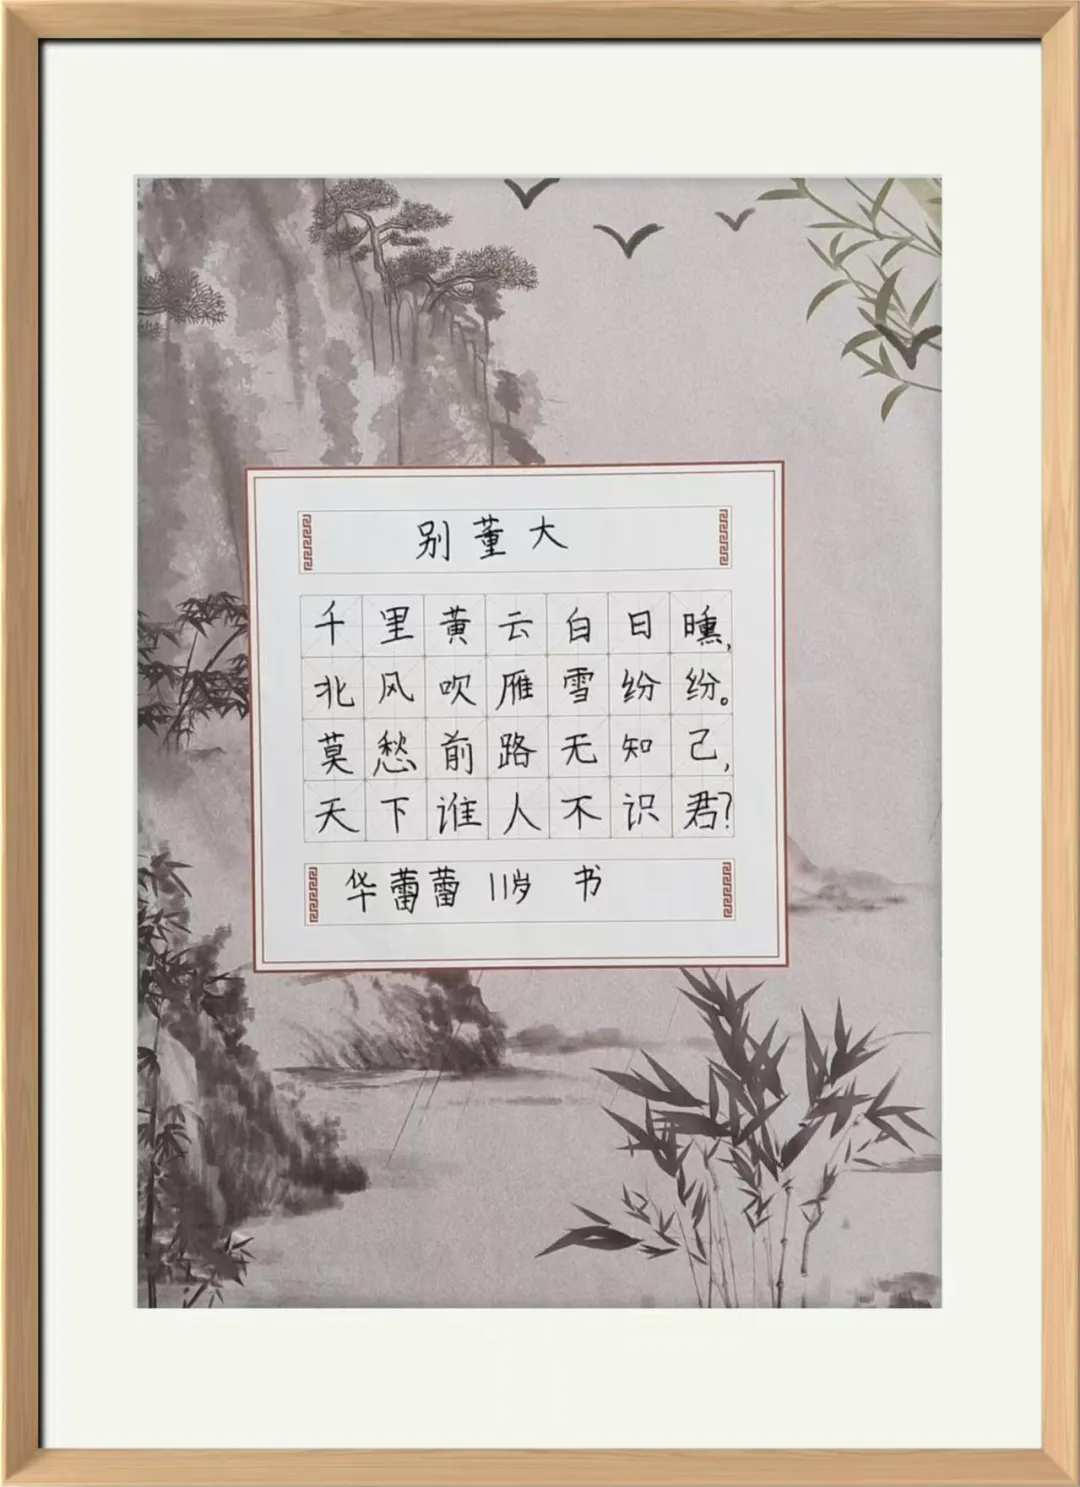 别董大
千里黄云白日曛,
北风吹雁雪纷纷。
莫愁前路无知己,
天下谁人不识君?
华蕾蕾 11岁 书